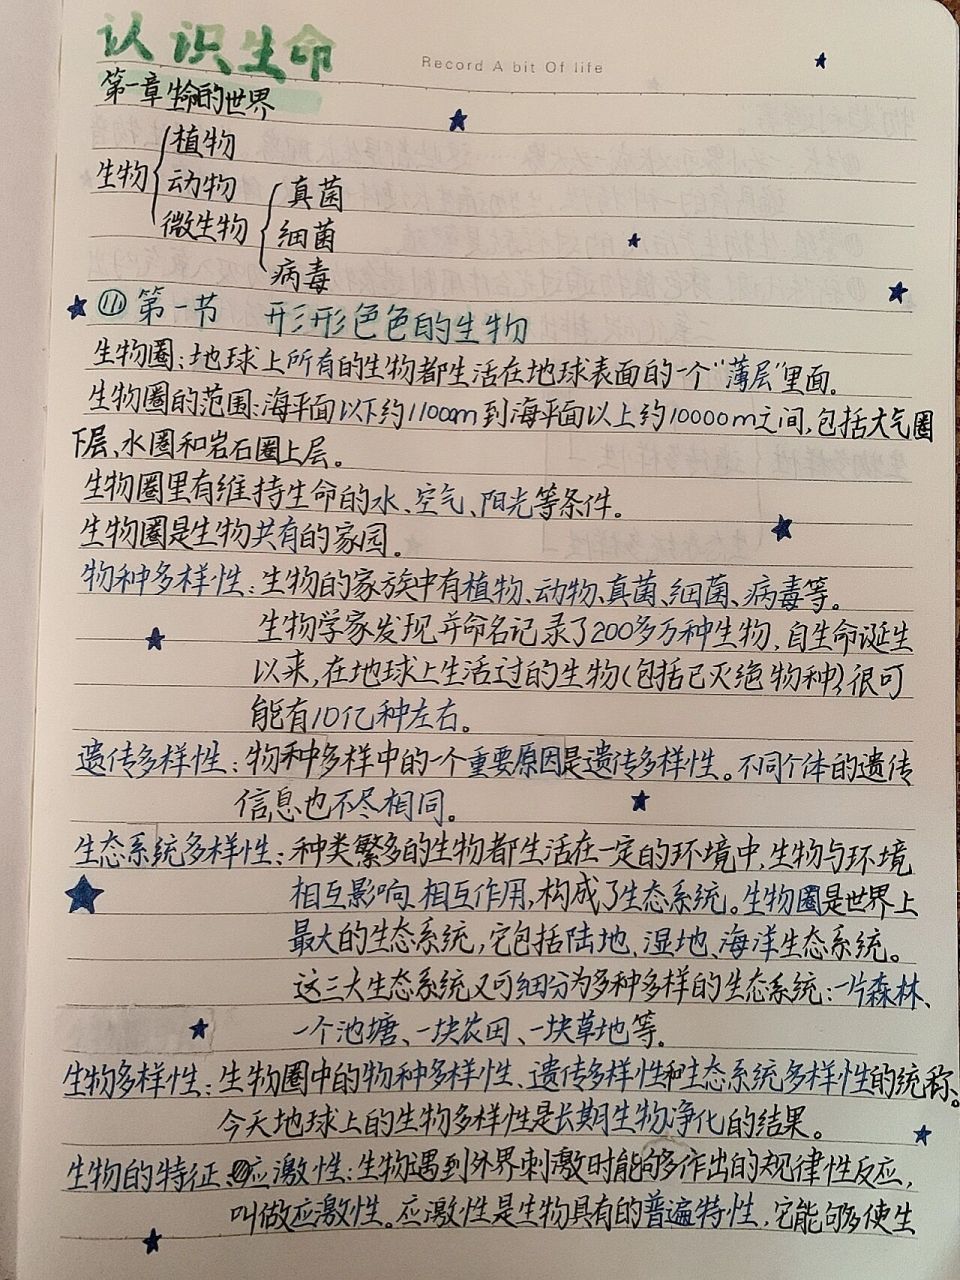 认识生命
Record A bit Of life
第一章生命的世界
植物
生物 动物
微生物 真菌
细菌
病毒
(1) 第一节 形形色色的生物
生物圈:地球上所有的生物都生活在地球表面的一个“薄层”里面。
生物圈的范围:海平面以下约1100m到海平面以上约10000m之间,包括大气圈
下层、水圈和岩石圈上层。
生物圈里有维持生命的水、空气、阳光等条件。
生物圈是生物共有的家园。
物种多样性:生物的家族中有植物、动物、真菌、细菌、病毒等。
生物学家发现并命名记录了200多万种生物,自生命诞生
以来,在地球上生活过的生物(包括已灭绝物种)很可
能有10亿种左右。
遗传多样性:物种多样中的一个重要原因是遗传多样性。不同个体的遗传
信息也不尽相同。
生态系统多样性:种类繁多的生物都生活在一定的环境中,生物与环境
相互影响、相互作用,构成了生态系统。生物圈是世界上
最大的生态系统,它包括陆地、湿地、海洋生态系统。
这三大生态系统又可细分为多种多样的生态系统:一片森林、
一个池塘、一块农田、一块草地等。
生物多样性:生物圈中的物种多样性、遗传多样性和生态系统多样性的统称。
今天地球上的生物多样性是长期生物净化的结果。
生物的特征:①应激性:生物遇到外界刺激时能够多作出的规律性反应,
叫做应激性。应激性是生物具有的普遍特性,它能够多使生